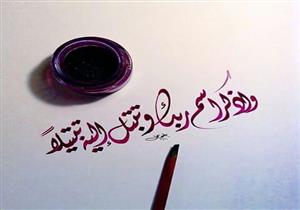 واذكر اسم ربك وتبتل إليه تبتيلاً